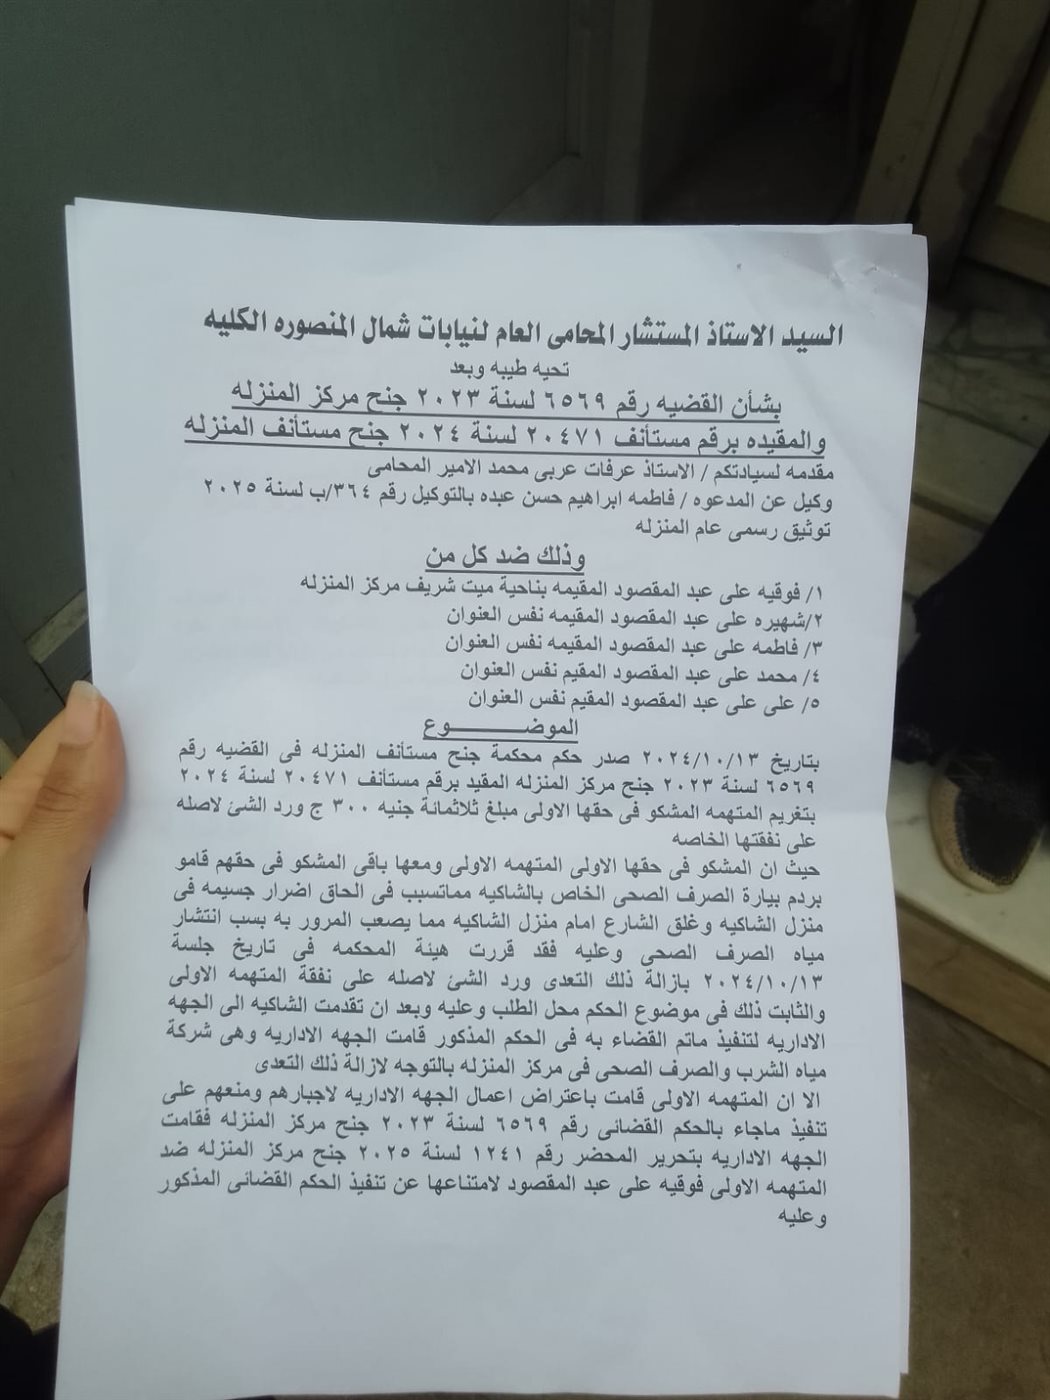 السيد الاستاذ المستشار المحامى العام لنيابات شمال المنصوره الكليه
تحيه طيبه وبعد
بشأن القضيه رقم ٦٥٦٩ لسنة ٢٠٢٣ جنح مركز المنزله
والمقيده برقم مستأنف ٢٠٤٧١ لسنة ٢٠٢٤ جنح مستأنف المنزله
مقدمه لسيادتكم / الاستاذ عرفات عربى محمد الامير المحامى
وكيل عن المدعوه / فاطمه ابراهيم حسن عبده بالتوكيل رقم ٣٦٤/ب لسنة ٢٠٢٥
توثيق رسمى عام المنزله
وذلك ضد كل من
١/ فوقيه على عبد المقصود المقيمه بناحية ميت شريف مركز المنزله
٢/شهيره على عبد المقصود المقيمه نفس العنوان
٣/ فاطمه على عبد المقصود المقيمه نفس العنوان
٤/ محمد على عبد المقصود المقيم نفس العنوان
٥/ على على عبد المقصود المقيم نفس العنوان
الموضــــــــــوع
بتاريخ ٢٠٢٤/١٠/١٣ صدر حكم محكمة جنح مستأنف المنزله فى القضيه رقم
٦٥٦٩ لسنة ٢٠٢٣ جنح مركز المنزله المقيد برقم مستأنف ٢٠٤٧١ لسنة ٢٠٢٤
بتغريم المتهمه المشكو فى حقها الاولى مبلغ ثلاثمانة جنيه ٣٠٠ ج ورد الشئ لاصله
على نفقتها الخاصه
حيث ان المشكو فى حقها الاولى المتهمه الاولى ومعها باقى المشكو فى حقهم قامو
بردم بيارة الصرف الصحى الخاص بالشاكيه مماتسبب فى الحاق اضرار جسيمه فى
منزل الشاكيه وغلق الشارع امام منزل الشاكيه مما يصعب المرور به بسب انتشار
مياه الصرف الصحى وعليه فقد قررت هيئة المحكمه فى تاريخ جلسة
٢٠٢٤/١٠/١٣ بازالة ذلك التعدى ورد الشئ لاصله على نفقة المتهمه الاولى
والثابت ذلك فى موضوع الحكم محل الطلب وعليه وبعد ان تقدمت الشاكيه الى الجهه
الاداريه لتنفيذ ماتم القضاء به فى الحكم المذكور قامت الجهه الاداريه وهى شركة
مياه الشرب والصرف الصحى فى مركز المنزله بالتوجه لازالة ذلك التعدى
الا ان المتهمه الاولى قامت باعتراض اعمال الجهه الاداريه لاجبارهم ومنعهم على
تنفيذ ماجاء بالحكم القضائى رقم ٦٥٦٩ لسنة ٢٠٢٣ جنح مركز المنزله فقامت
الجهه الاداريه بتحرير المحضر رقم ١٢٤١ لسنة ٢٠٢٥ جنح مركز المنزله ضد
المتهمه الاولى فوقيه على عبد المقصود لامتناعها عن تنفيذ الحكم القضائى المذكور
وعليه